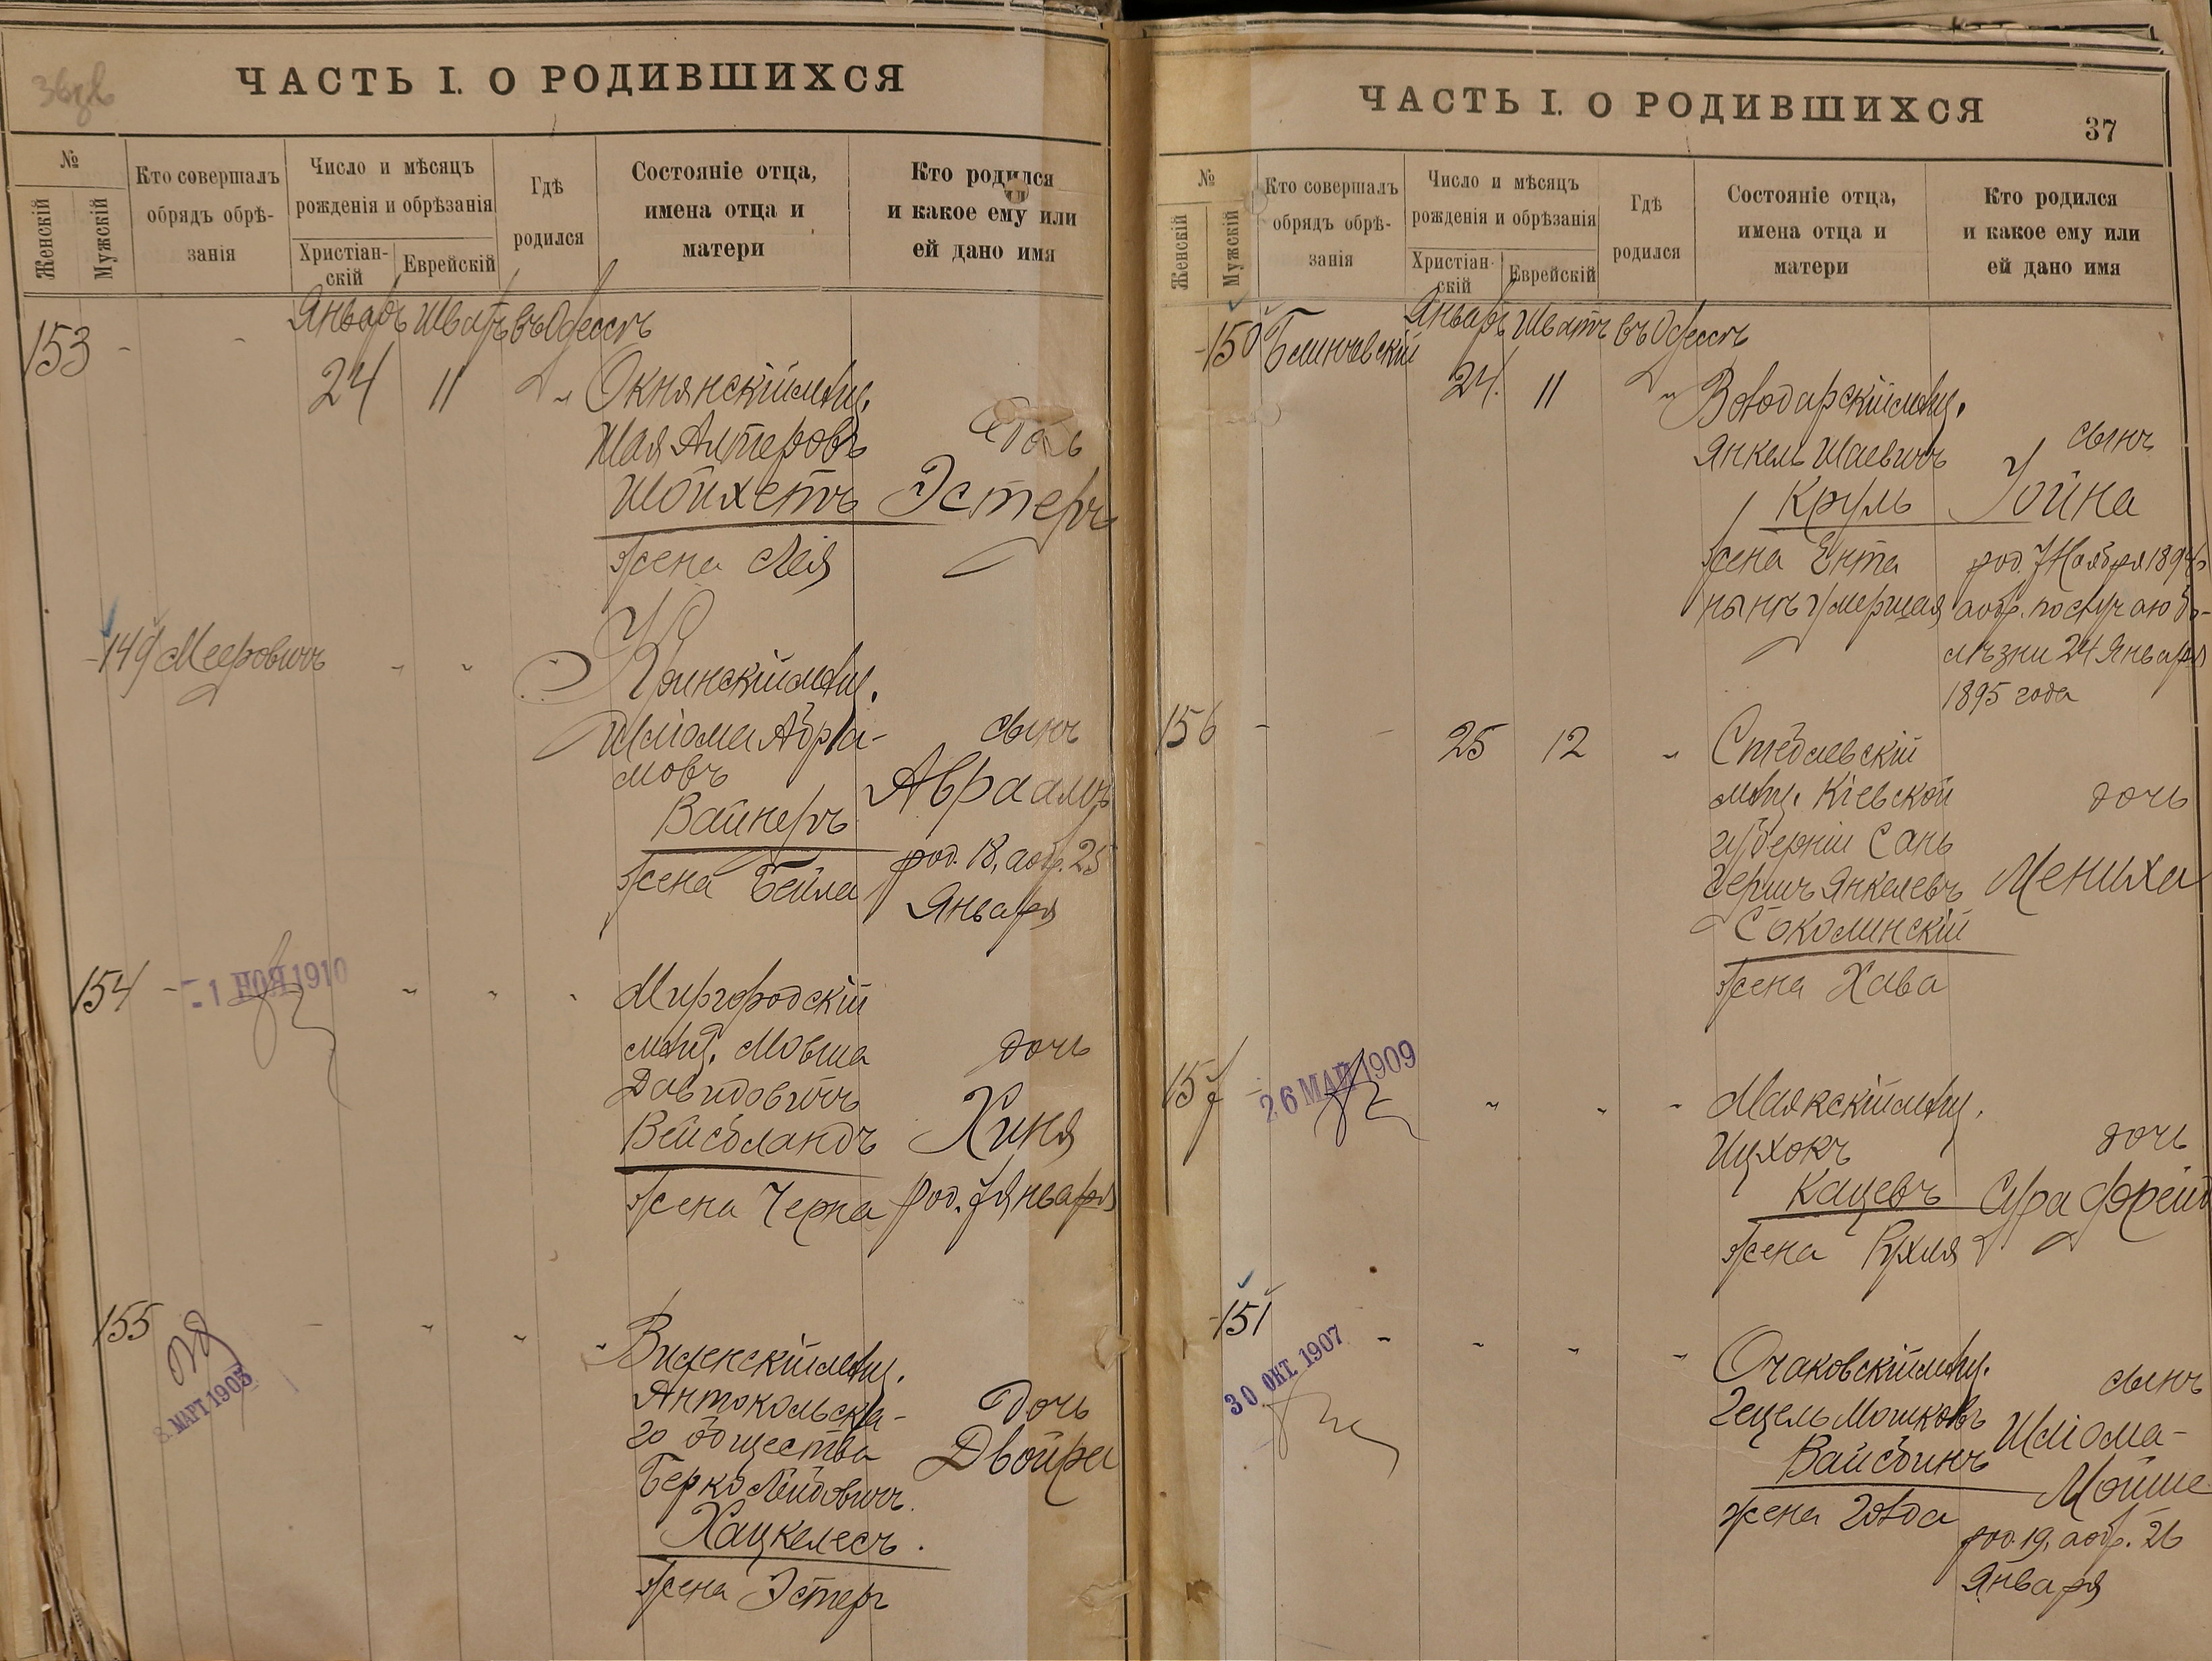 ЧАСТЬ I. О РОДИВШИХСЯ
№
Женскій
Мужскій
Кто совершалъ
обрядъ обрѣ-
занія
Число и мѣсяцъ
рожденія и обрѣзанія
Христіан-
скій
Еврейскій
Гдѣ
родился
Состояніе отца,
имена отца и
матери
Кто родился
и какое ему или
ей дано имя
Январь Шватъ въ Одессѣ
153 - - 24 11 " Окнянскій мѣщ.
Шая Алтеровъ дочь
Шойхетъ Эстеръ
жена Лея
149 Мееровичъ " "
мѣщ.
Шлiома Абра-
мовъ сынъ
Вайнеръ Авраамъ
жена Бейла род. 18, аобр. 25
Января
154 - - 1 НОЯ 1910 " " "
Миргородскій
мѣщ. Мовша дочь
Давидовичъ
Вейсбландъ Хиня
жена Черна род. 7 Января
155 - " " "
8 МАРТ 1905
Виленскій мѣщ.
Антокольска-
го общества дочь
Берко Лейбовичъ Двойра
Хацкелесъ.
жена Эстер
ЧАСТЬ I. О РОДИВШИХСЯ
37
№
Женскій
Мужскій
Кто совершалъ
обрядъ обрѣ-
занія
Число и мѣсяцъ
рожденія и обрѣзанія
Христіан-
скій
Еврейскій
Гдѣ
родился
Состояніе отца,
имена отца и
матери
Кто родился
и какое ему или
ей дано имя
Январь Шватъ въ Одессѣ
150 24. 11 " Володарскій мѣщ.
Янкель Шаевичъ сынъ
Круль Іойна
жена Ента род. 7 Ноября 1894
нынѣ умершая аобр. по случаю бо-
лѣзни 24 Января
1895 года
156 - - 25 12 "
мѣщ. Кіевской дочь
губерніи Сань
Гершъ Янкелевъ Мениха
Соколинскій
жена Хава
157 - 26 МАЙ 1909 " " "
Маякскій мѣщ.
Ицхокъ дочь
Кацевъ Сура Фрейд
жена Рухля
151 - " " "
30 ОКТ. 1907
Очаковскій мѣщ.
Гецель Мошковъ сынъ
Вайсбинъ Шлiома-
Мойше
жена Голда род. 19, аобр. 26
Января